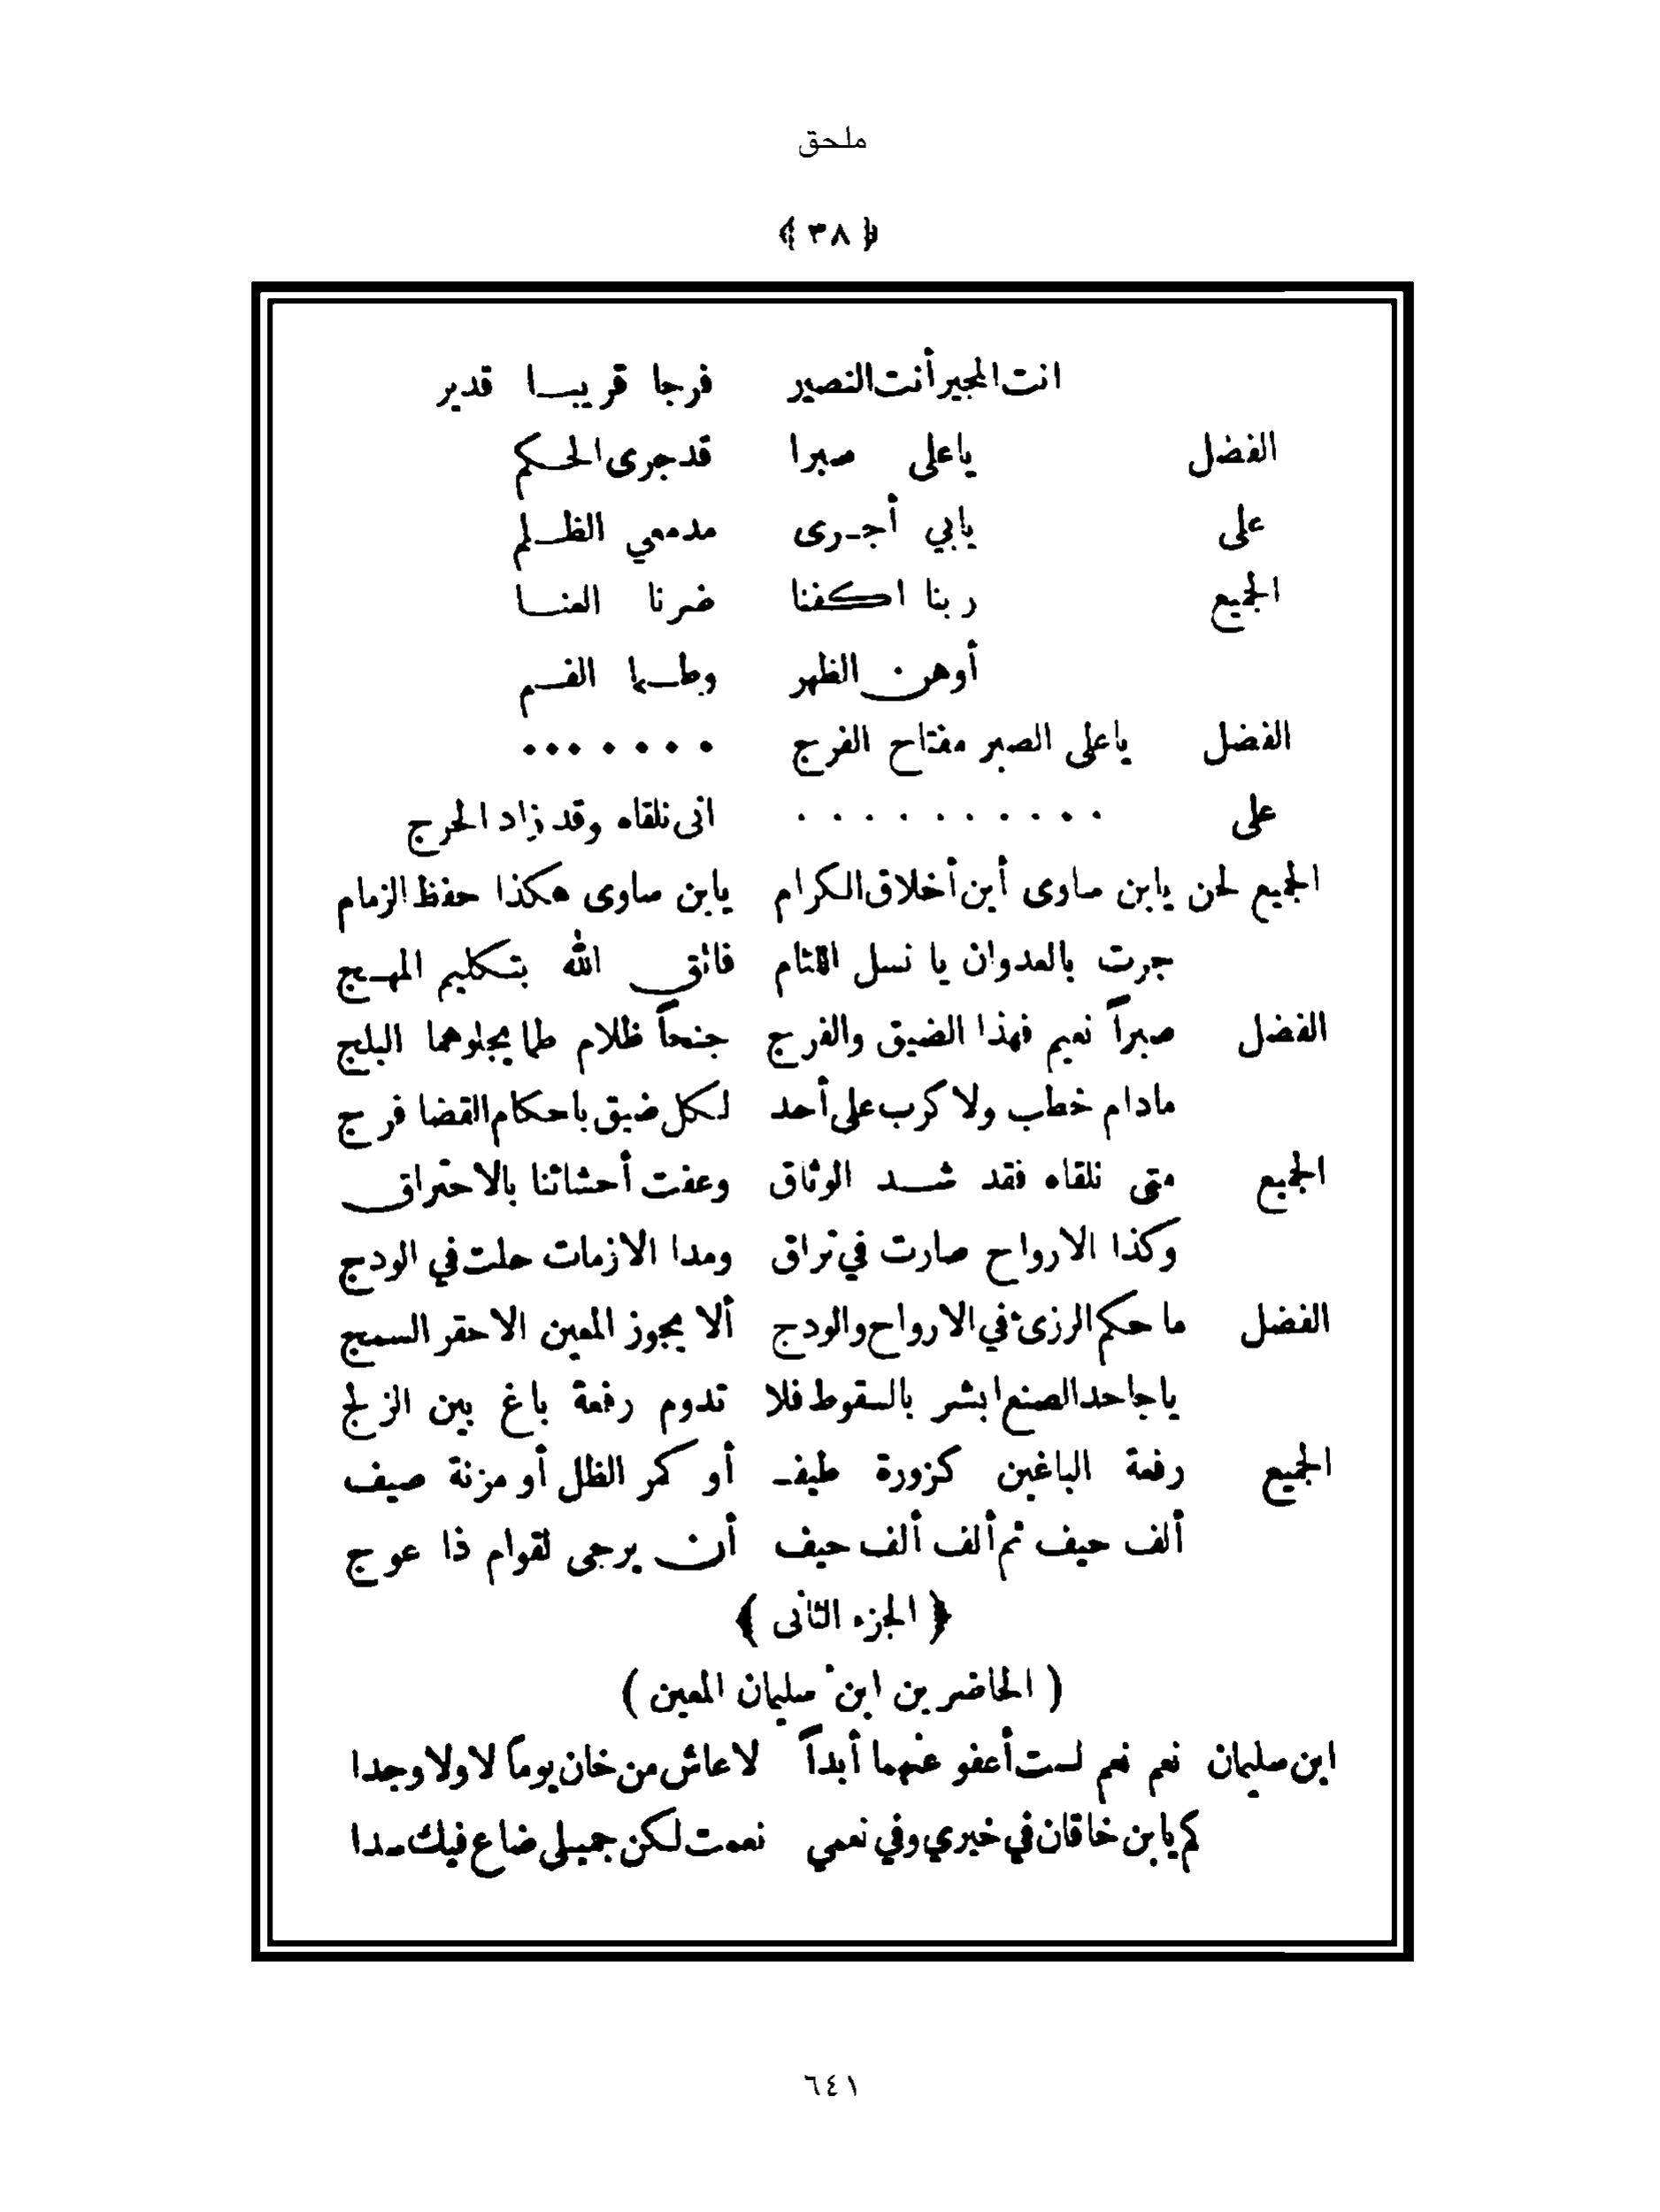 ملحق
﴿ ٣٨ ﴾
انت المجير أنت النصير فرجا قريبا قدير
الفضل ياعلى صبرا قد جرى الحكم
على يابي أجرى مدمعي الظلم
الجميع ربنا اكفنا ضرنا العنا
أوهن الظهر وطما الغم
الفضل ياعلى الصبر مفتاح الفرج .......
على .......... انى نلقاه وقد زاد الحرج
الجميع لحن يابن ماوى أين أخلاق الكرام يابن ماوى هكذا حفظ الزمام
جرت بالعدوان يا نسل اللئام فاتق الله بتكليم المهج
الفضل صبراً نعيم فهذا الضيق والفرج جنحاً ظلام طما يجلوهما البلج
مادام خطب ولا كرب على أحد لكل ضيق باحكام القضا فرج
الجميع متى نلقاه فقد شد الوثاق وعفت أحشائنا بالاحتراق
وكذا الارواح صارت في تراق ومدا الازمات حلت في الودج
الفضل ما حكم الرزئ في الارواح والودج ألا يجوز المعين الاحقر السمج
يا جاحد الصنع ابشر بالسقوط فلا تدوم رفعة باغ بين الزلج
الجميع رفعة الباغين كزورة طيف أو كمر الظل أو مزنة صيف
ألف حيف ثم ألف ألف حيف أن يرجى لقوام ذا عوج
﴿ الجزء الثانى ﴾
( الحاضرين ابن سليمان المعين )
ابن سليمان نعم نعم لست أعفو عنهما أبداً لا عاش من خان يوماً لا ولا وجدا
كم يابن خاقان في خيري وفي نعمي نعمت لكن جميلى ضاع فيك سدا
٦٤١